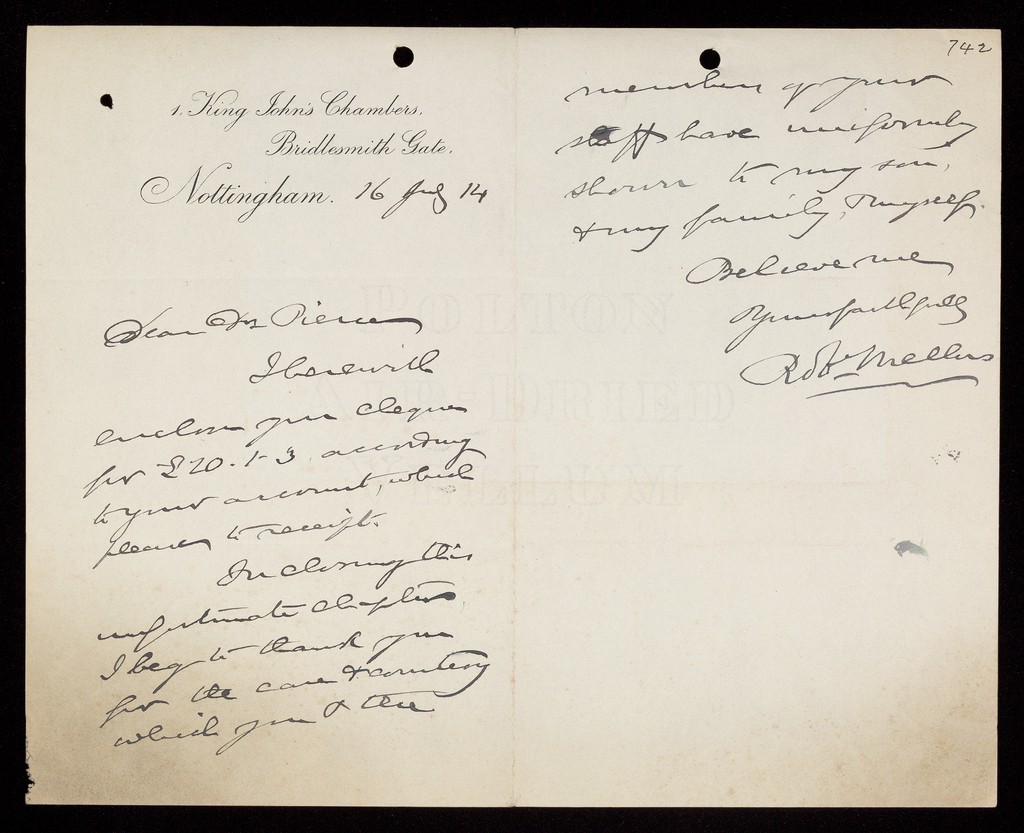 1, King John's Chambers,
Bridlesmith Gate,
Nottingham. 16 July 14
Dear Dr Pierce
I herewith
enclose you cheque
for £20-1-3, according
to your account, which
please to receipt.
In closing this
unfortunate chapter
I beg to thank you
for the care & courtesy
which you & the
742
members of your
staff have uniformly
shown to my son,
& my family, & myself.
Believe me
Yours faithfully
Robt Mellers
BOLTON
AIR-DRIED
VELLUM